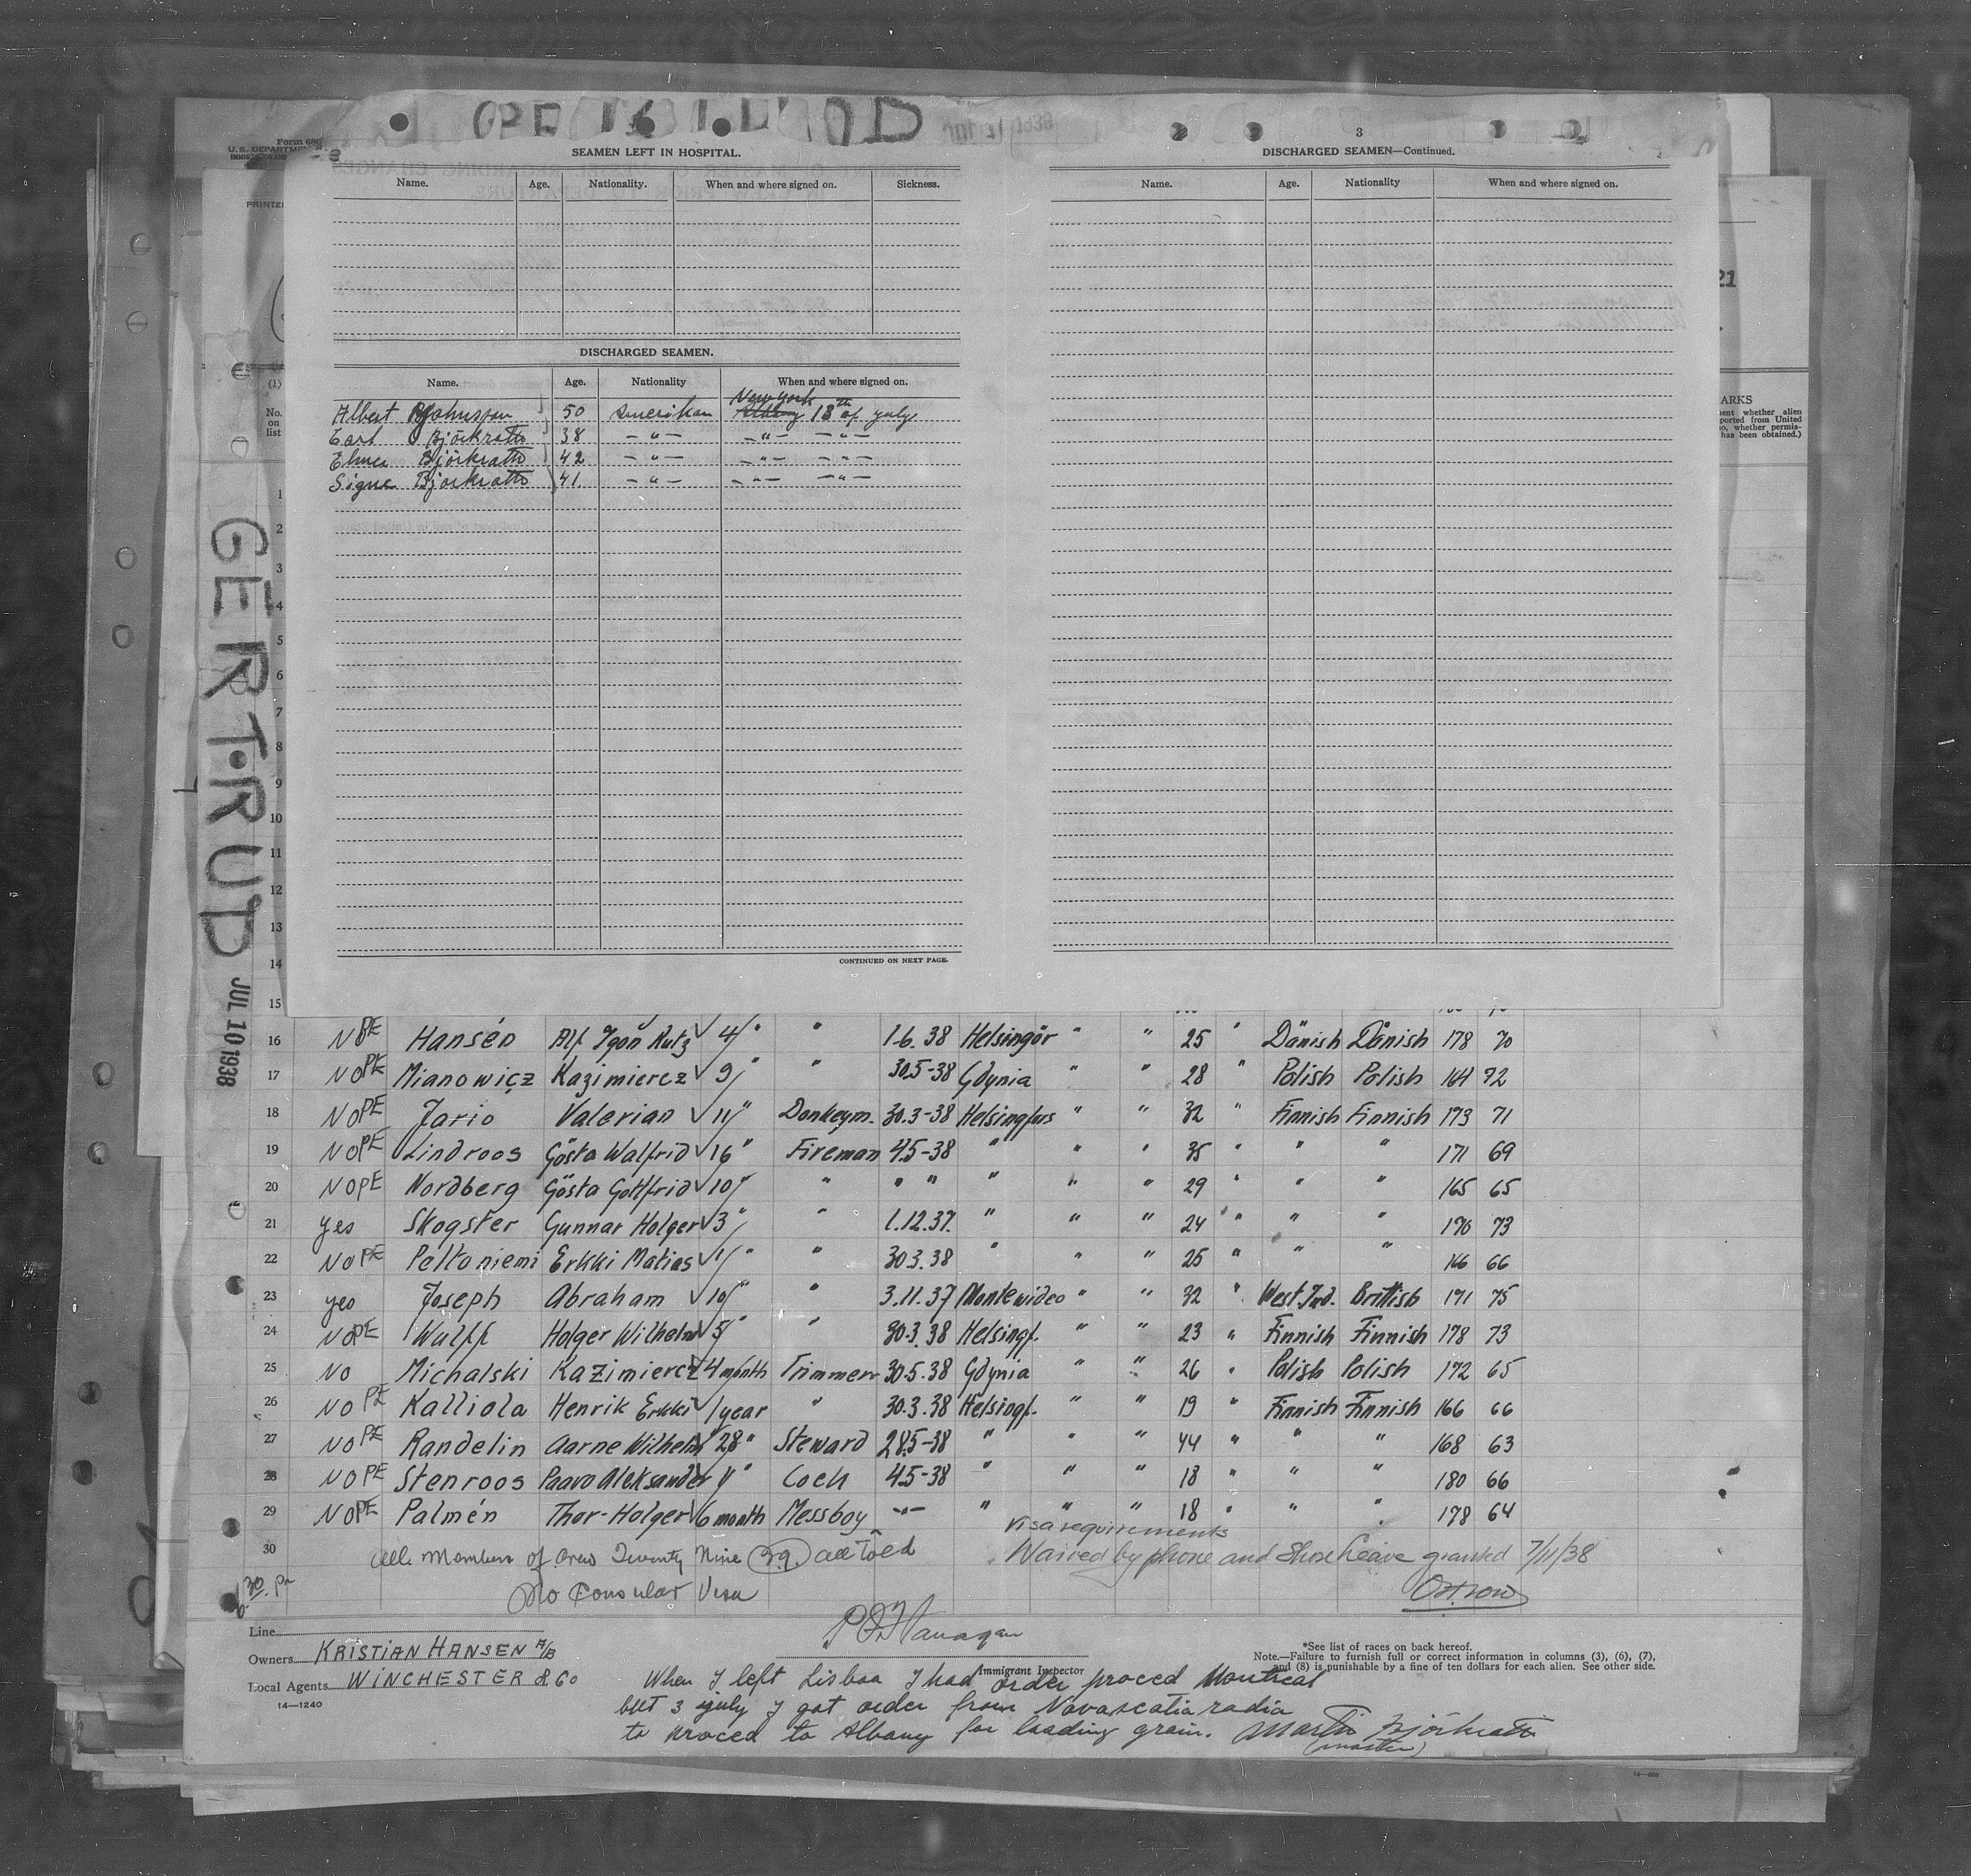 GERTRUD
3
Form 680
U. S. DEPARTMENT
SEAMEN LEFT IN HOSPITAL.
Name. Age. Nationality. When and where signed on. Sickness.
DISCHARGED SEAMEN.
Name. Age. Nationality When and where signed on.
New York
Albert Johnsson 50 Amerikan Albany 18th of july
Carl Björkratto 38 — " — — " — — " —
Elmer Björkratto 42 — " — — " — — " —
Signe Björkratto 41. — " — — " — — " —
CONTINUED ON NEXT PAGE.
DISCHARGED SEAMEN—Continued.
Name. Age. Nationality When and where signed on.
21
ARKS
GERTRUD JUL 10 1938
(1)
No.
on
list
1
2
3
4
5
6
7
8
9
10
11
12
13
14
15
16 NO PE Hansén Alf Igon Kutz 4 " " 1.6.38 Helsingör " " 25 " Dänish Dänish 178 70
17 NO PE Mianowicz Kazimiercz 9 " " 30.5-38 Gdynia " " 28 " Polish Polish 164 72
18 NO PE Jario Valerian 11 " Donkeym. 30.3-38 Helsingfors " " 32 " Finnish Finnish 173 71
19 NO PE Lindroos Gösta Walfrid 16 " Fireman 4.5-38 " " " 35 " " " 171 69
20 NO PE Nordberg Gösta Gottfrid 10 " " " " " " " 29 " " " 165 65
21 yes Skogster Gunnar Holger 3 " " 1.12.37. " " " 24 " " " 170 73
22 NO PE Peltoniemi Erkki Matias 1 " " 30.3.38 " " " 25 " " " 166 66
23 yes Joseph Abraham 10 " " 3.11.37 Montewideo " " 32 " West.Ind. Brittish 171 75
24 NO PE Wulff Holger Wilhelm 5 " " 30.3.38 Helsingf. " " 23 " Finnish Finnish 178 73
25 NO Michalski Kazimiercz 4 month Trimmer 30.5.38 Gdynia " " 26 " Polish Polish 172 65
26 NO PE Kalliola Henrik Erkki 1 year " 30.3.38 Helsingf. " " 19 " Finnish Finnish 166 66
27 NO PE Randelin Aarne Wilhelm 28 " Steward 28.5-38 " " " 44 " " " 168 63
28 NO PE Stenroos Paavo Aleksander 1 " Coch 4.5-38 " " " 18 " " " 180 66
29 NO PE Palmén Thor-Holger 6 month Messboy —"— " " " 18 " " " 178 64
30 All Members of Crew Twenty Nine (29) all
visa requirements
Waived by phone and Shore Leave granted 7/11/38
No Consular Visa
Line
Owners KRISTIAN HANSEN A/B
Local Agents WINCHESTER & Co
14—1240
P O Flanagan
Immigrant Inspector
*See list of races on back hereof.
Note.—Failure to furnish full or correct information in columns (3), (6), (7),
and (8) is punishable by a fine of ten dollars for each alien. See other side.
When I left Lisboa I had order proced Montreal
but 3 july I got order from Novascatia radia
to proced to Albany for loading grain. Martin Björkratto
(master)